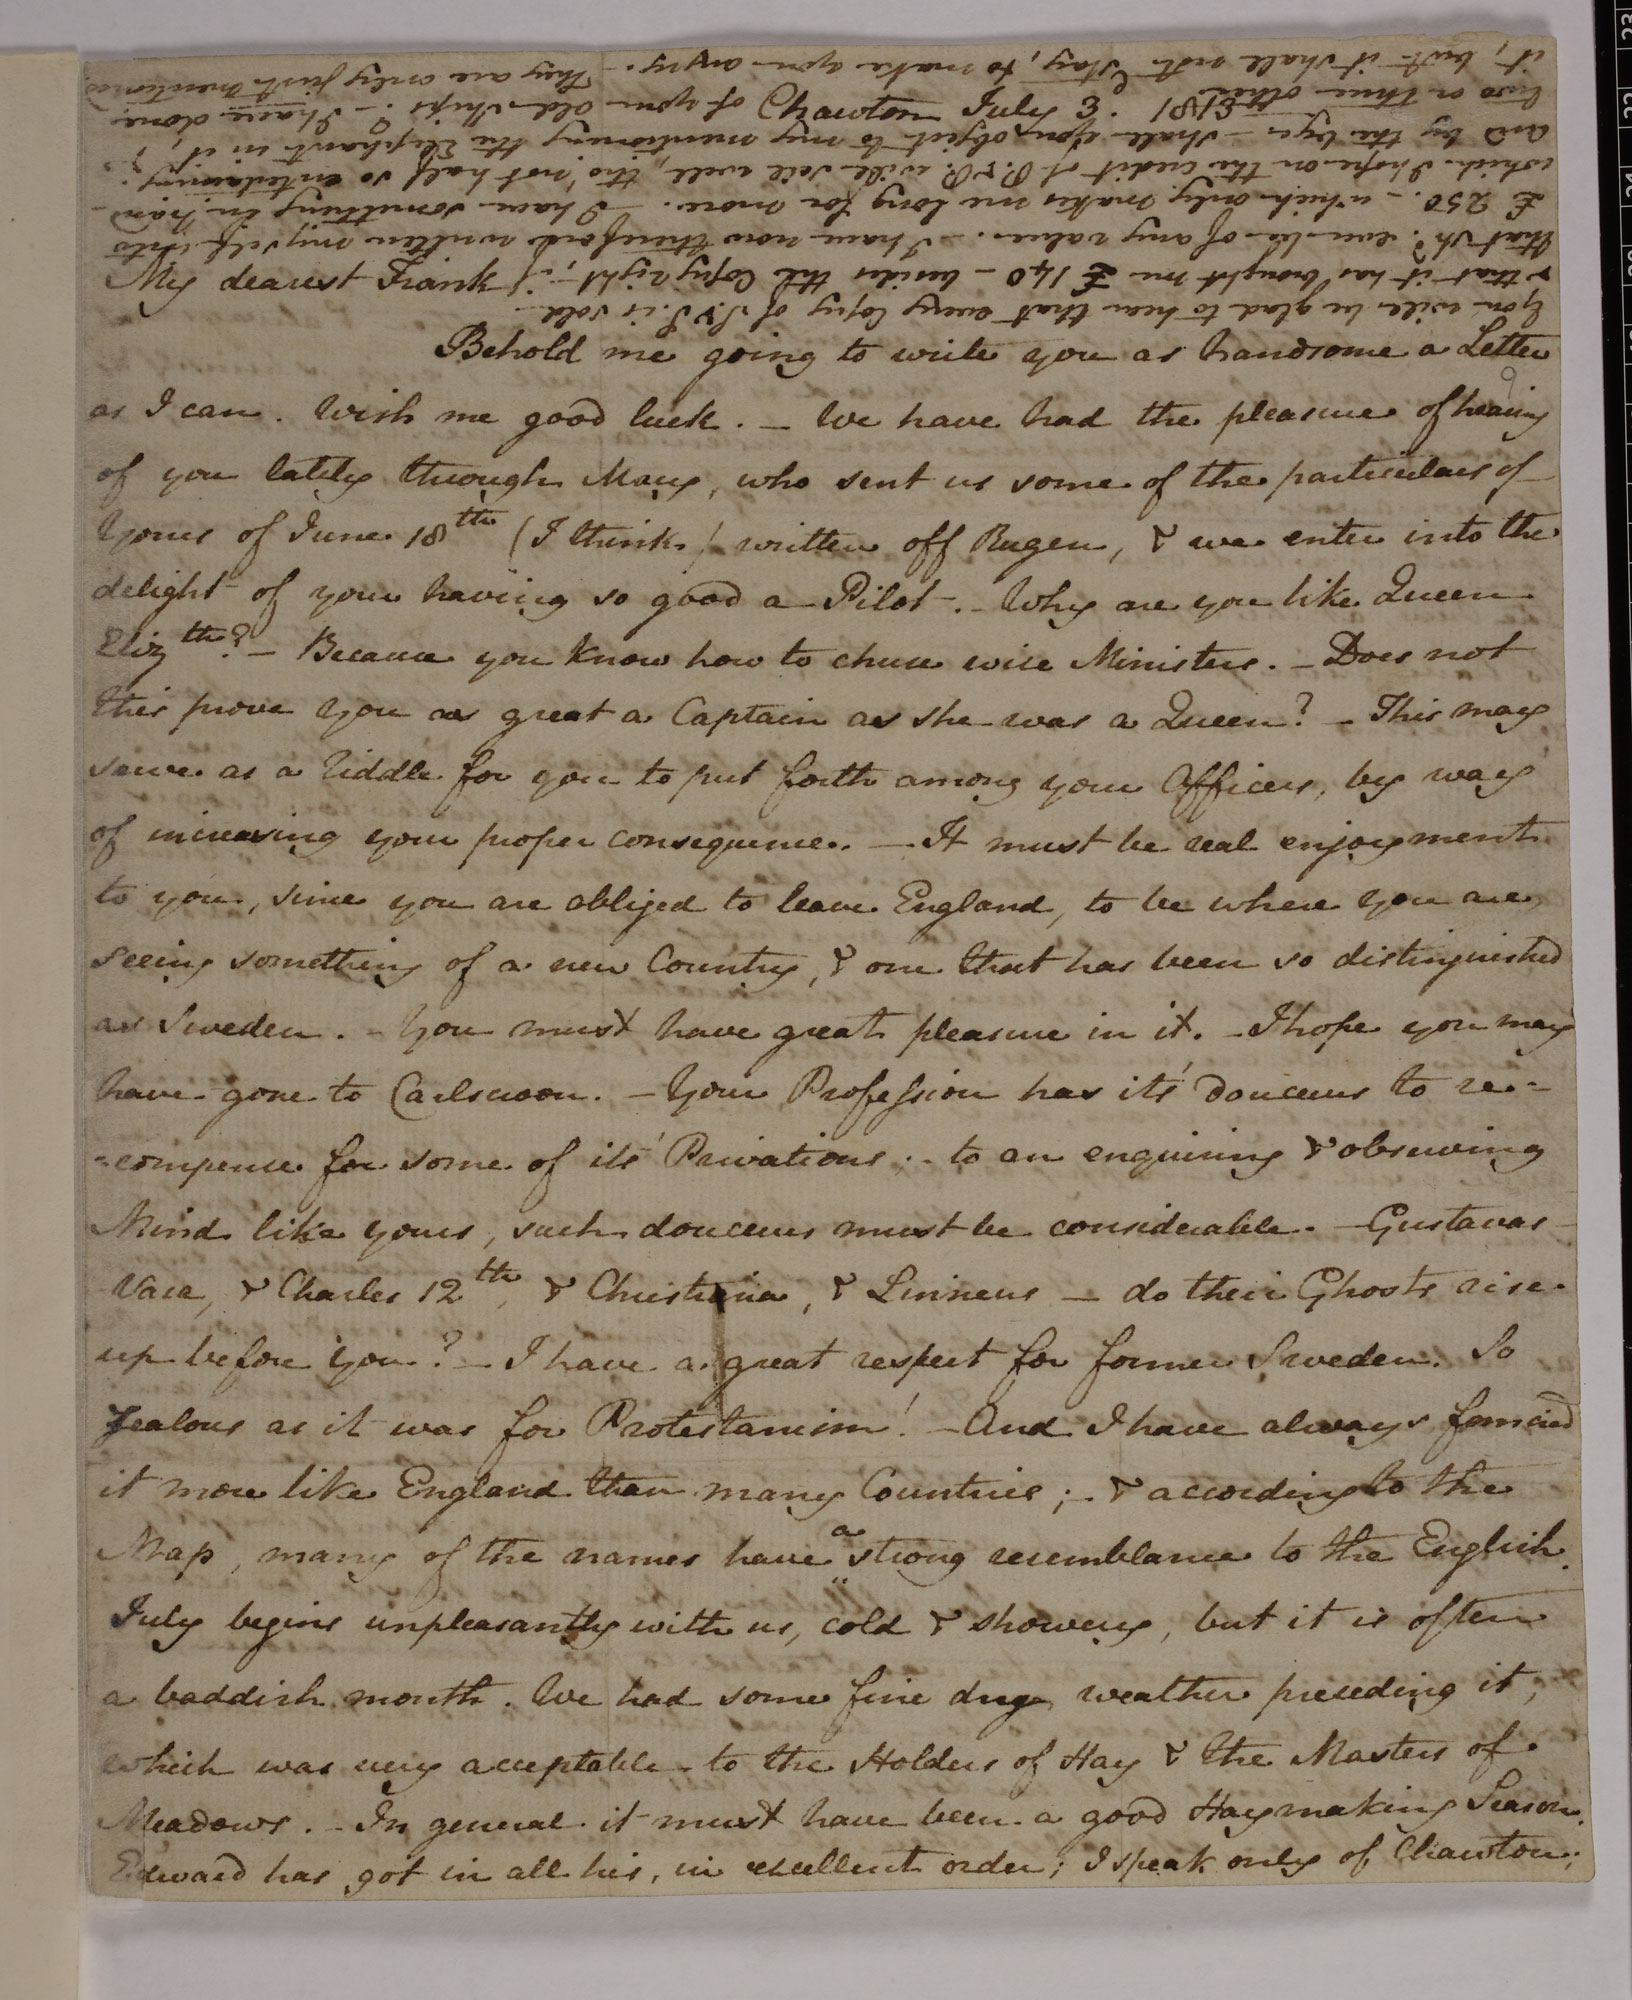 Chawton July 3. 1813.
My dearest Frank
Behold me going to write you as handsome a Letter
as I can. Wish me good luck. – We have had the pleasure of hearing
of you lately through Mary, who sent us some of the particulars of
Yours of June 18th (I think) written off Rugen, & we enter into the
delight of your having so good a Pilot. – Why are you like Queen
Elizth? – Because you know how to chuse wise Ministers. – Does not
this prove you as great a Captain as she was a Queen? – This may
serve as a riddle for you to put forth among your Officers, by way
of increasing your proper consequence. – It must be real enjoyment
to you, since you are obliged to leave England, to be where you are,
seeing something of a new Country, & one that has been so distinguished
as Sweden. – You must have great pleasure in it. – I hope you may
have gone to Carlscroon. – Your Profession has it's douceurs to re=
=compense for some of it's Privations; – to an enquiring & observing
Mind like yours, such douceurs must be considerable. – Gustavus-
Vasa, & Charles 12th, & Christiana, & Linneus – do their Ghosts rise
up before You? – I have a great respect for former Sweden. So
zealous as it was for Protestanism! – And I have always fancied
it more like England than many Countries; – & according to the
Map, many of the names have a strong resemblance to the English.
July begins unpleasantly with us, cold & showery, but it is often
a baddish month. We had some fine dry weather preceding it,
which was very acceptable to the Holders of Hay & the Masters of
Meadows. – In general it must have been a good Haymaking Season.
Edward has got in all his, in excellent order; I speak only of Chawton;
You will be glad to hear that every Copy of S. & S. is sold
& that it has brought me £140 – besides the Copyright, if
that shd ever be of any value. – I have now therefore written myself into
£250. – which only makes me long for more. – I have something in hand –
which I hope on the credit of P. & P. will sell well, tho' not half so entertaining.
And by the bye – shall you object to my mentioning the Elephant in it, &
two or three other of your old Ships? – I have done
it, but it shall not stay, to make you angry. – They are only just mentioned.